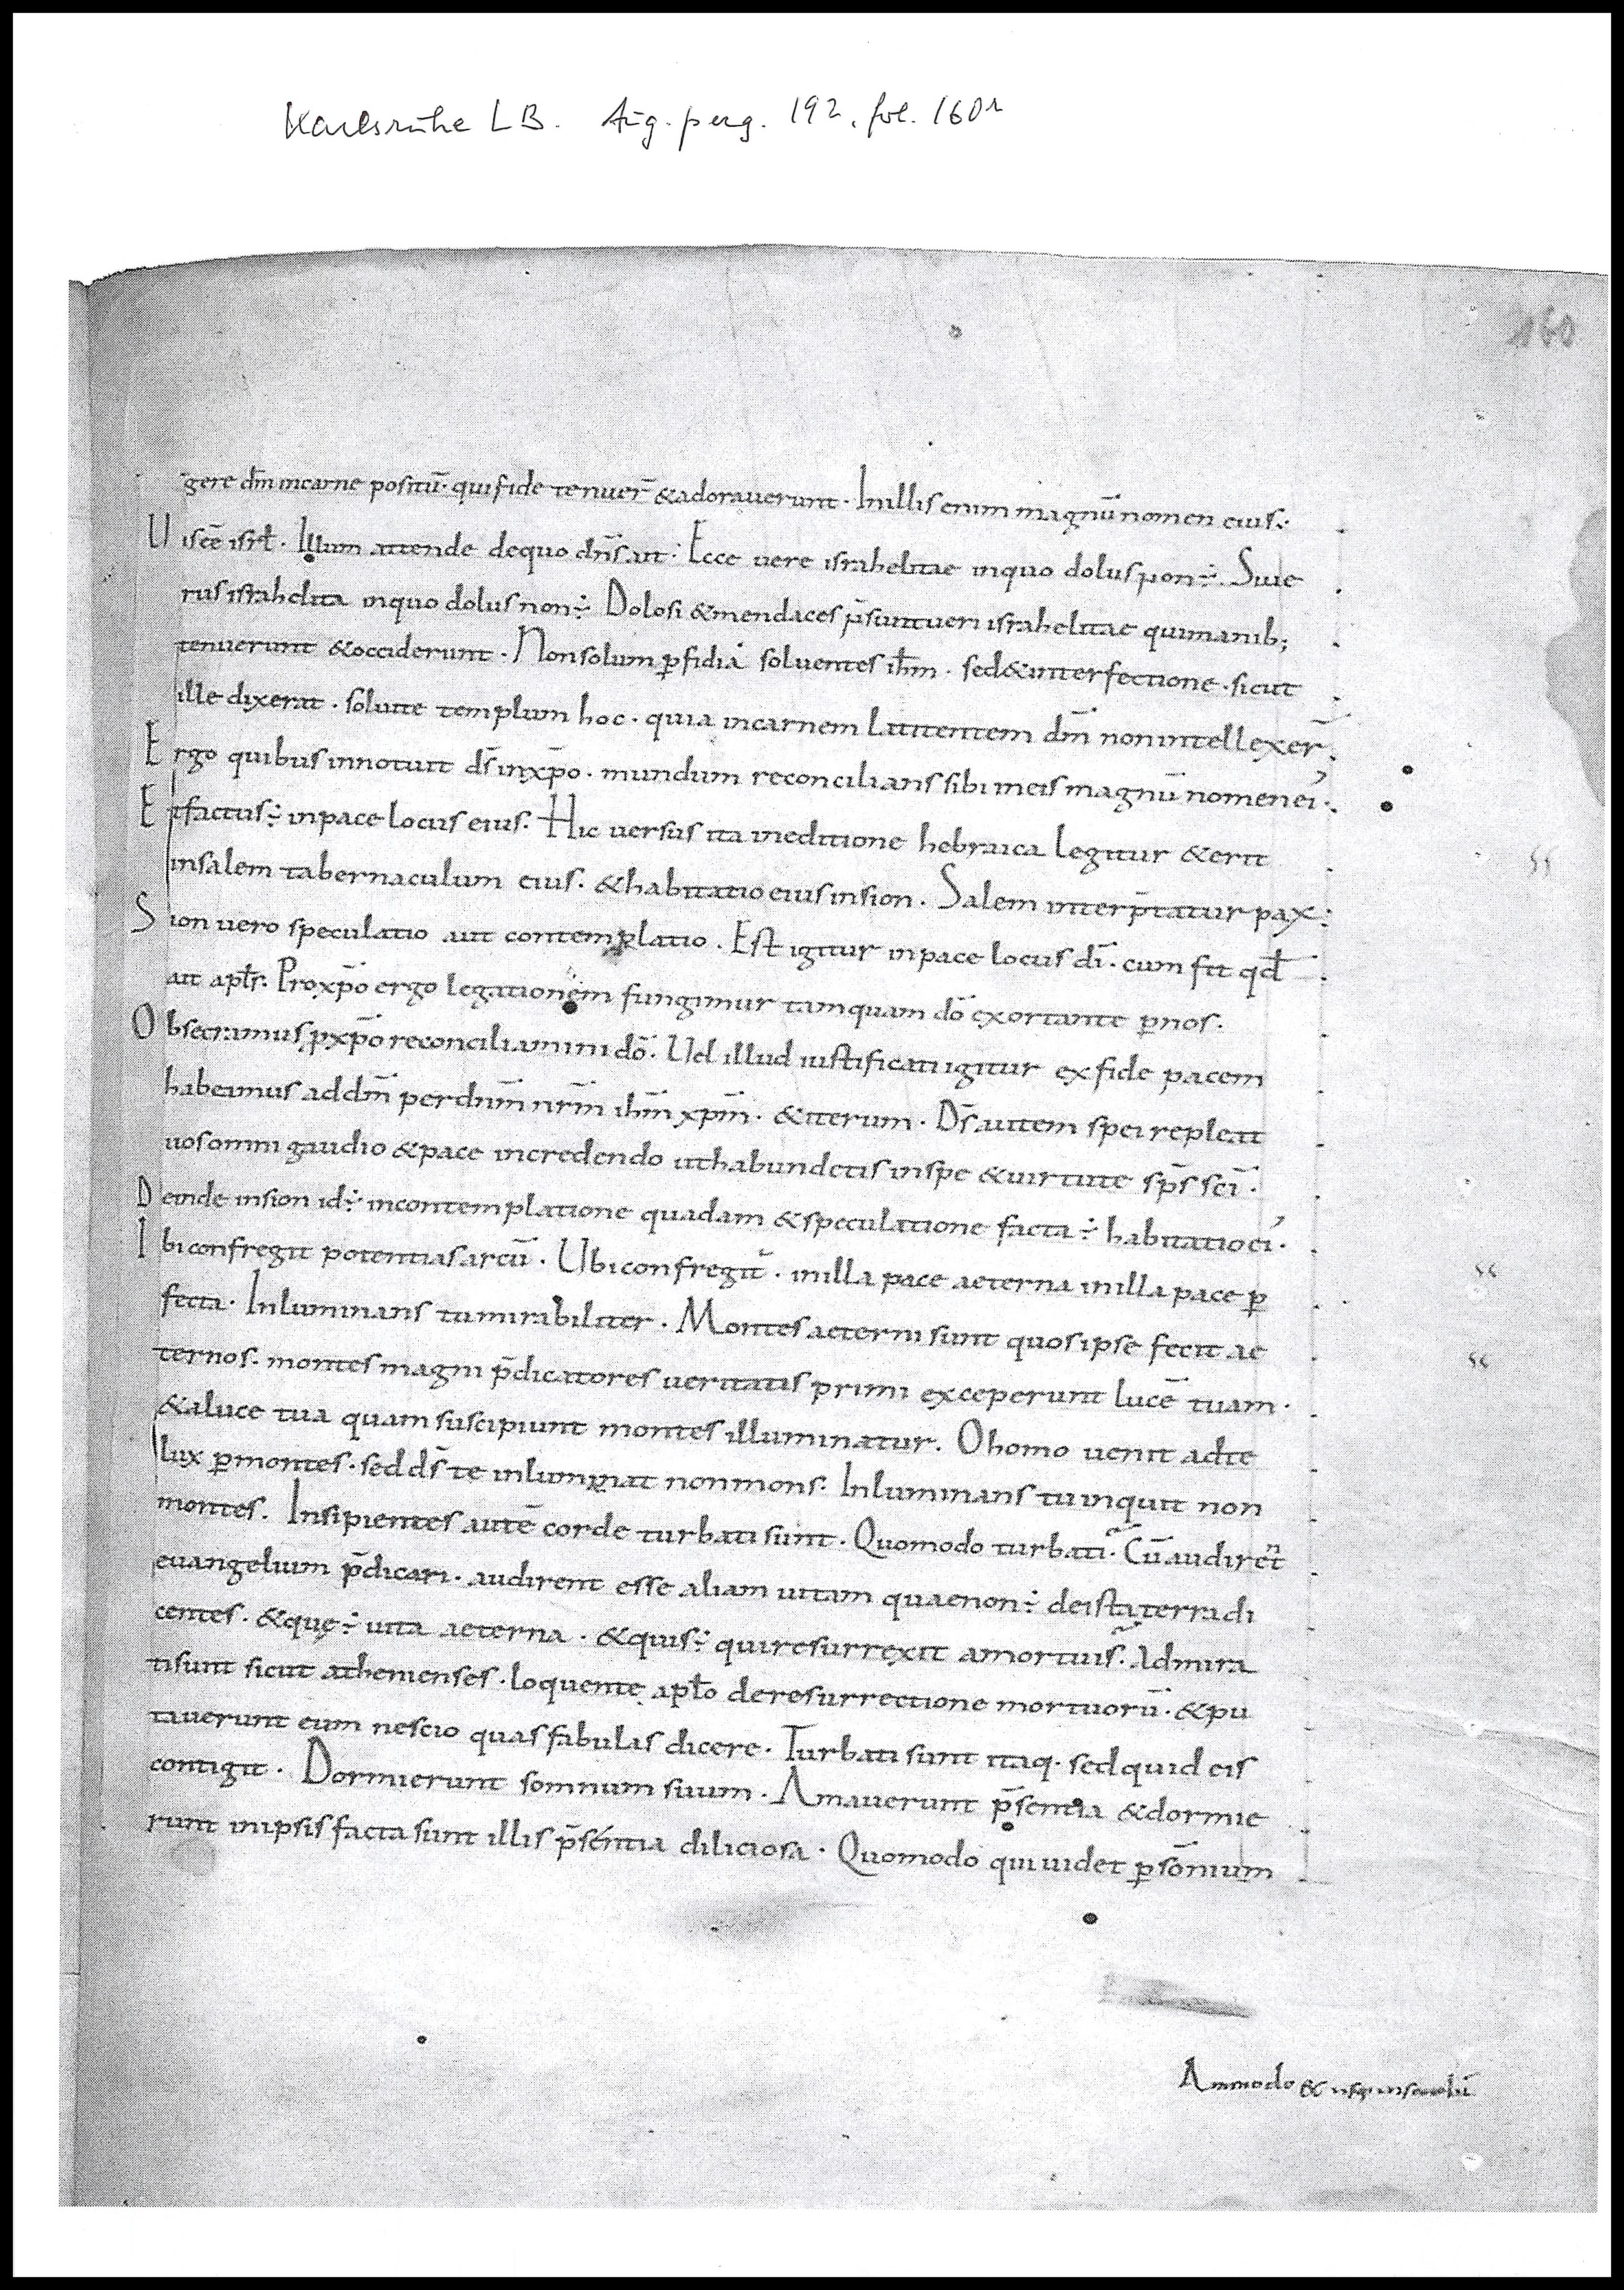 Karlsruhe LB. Aug. perg. 192, fol. 160r
160
gere dm̄ incarne positū· quifide tenuer̄ &adorauerunt· Inillis enim magnū nomen eius·
U iscē isrl̄· Illum attende dequo dn̄s ait· Ecce uere israhelitae inquo dolus non÷· Siue
rus israhelita inquo dolus non÷ Dolosi &mendaces p̄suntueri israhelitae quimanib;
tenuerunt &occiderunt· Nonsolum ꝑfidia soluentes ihm̄· sed&interfectione· sicut
ille dixerat· soluite templum hoc· quia incarnem Latitentem dm̄ nonintellexer̄·
E rgo quibus innotuit ds̄ inxp̄o· mundum reconcilians sibi ineis magnū nomenei᾽·
E tfactus÷ inpace Locus eius· Hic uersus ita ineditione hebraica Legitur &erit
insalem tabernaculum eius· &habitatio eius insion· Salem interp̄tatur pax·
S ion uero speculatio aut contemplatio· Est igitur inpace Locus dī· cum fit qd̄
ait apls̄· Proxp̄o ergo legationem fungimur tamquam dō exortante ꝑnos·
O bsecramus ꝓxp̄o reconciliamini dō· Uel illud iustificati igitur ex fide pacem
habeamus addm̄ perdnm̄ nrm̄ ihm̄ xpm̄· &iterum· Ds̄ autem spei repleat
uosomni gaudio &pace incredendo uthabundetis inspe &uirtute sp̄s scī·
D einde insion id÷ incontemplatione quadam &speculatione facta÷ habitatioei᾽·
I biconfregit potentias arcū· Ubiconfregit· inilla pace aeterna inilla pace ꝑ
fecta· Inluminans tumirabiliter· Montes aeterni sunt quos ipse fecit ae
ternos· montes magni p̄dicatores ueritatis primi exceperunt lucē tuam·
&aluce tua quam suscipiunt montes illuminatur· Ohomo uenit adte
lux ꝑmontes· sed ds̄ te inluminat nonmons· Inluminans tu inquit non
montes· Insipientes autē corde turbati sunt· Quomodo turbati· Cū audirēt
euangelium p̄dicari· audirent esse aliam uitam quaenon÷ deista terra di
centes· &quę÷ uita aeterna· &quis÷ quiresurrexit amortuis· Admira
tisunt sicut athenienses· loquente apl̄o deresurrectione mortuorū· &pu
tauerunt eum nescio quas fabulas dicere· Turbati sunt itaq· sed quid eis
contigit· Dormierunt somnum suum· Amauerunt p̄sentia &dormie
runt inipsis facta sunt illis p̄sentia diliciosa· Quomodo qui uidet ꝑsomnium
Ammodo & usq; insaeculū